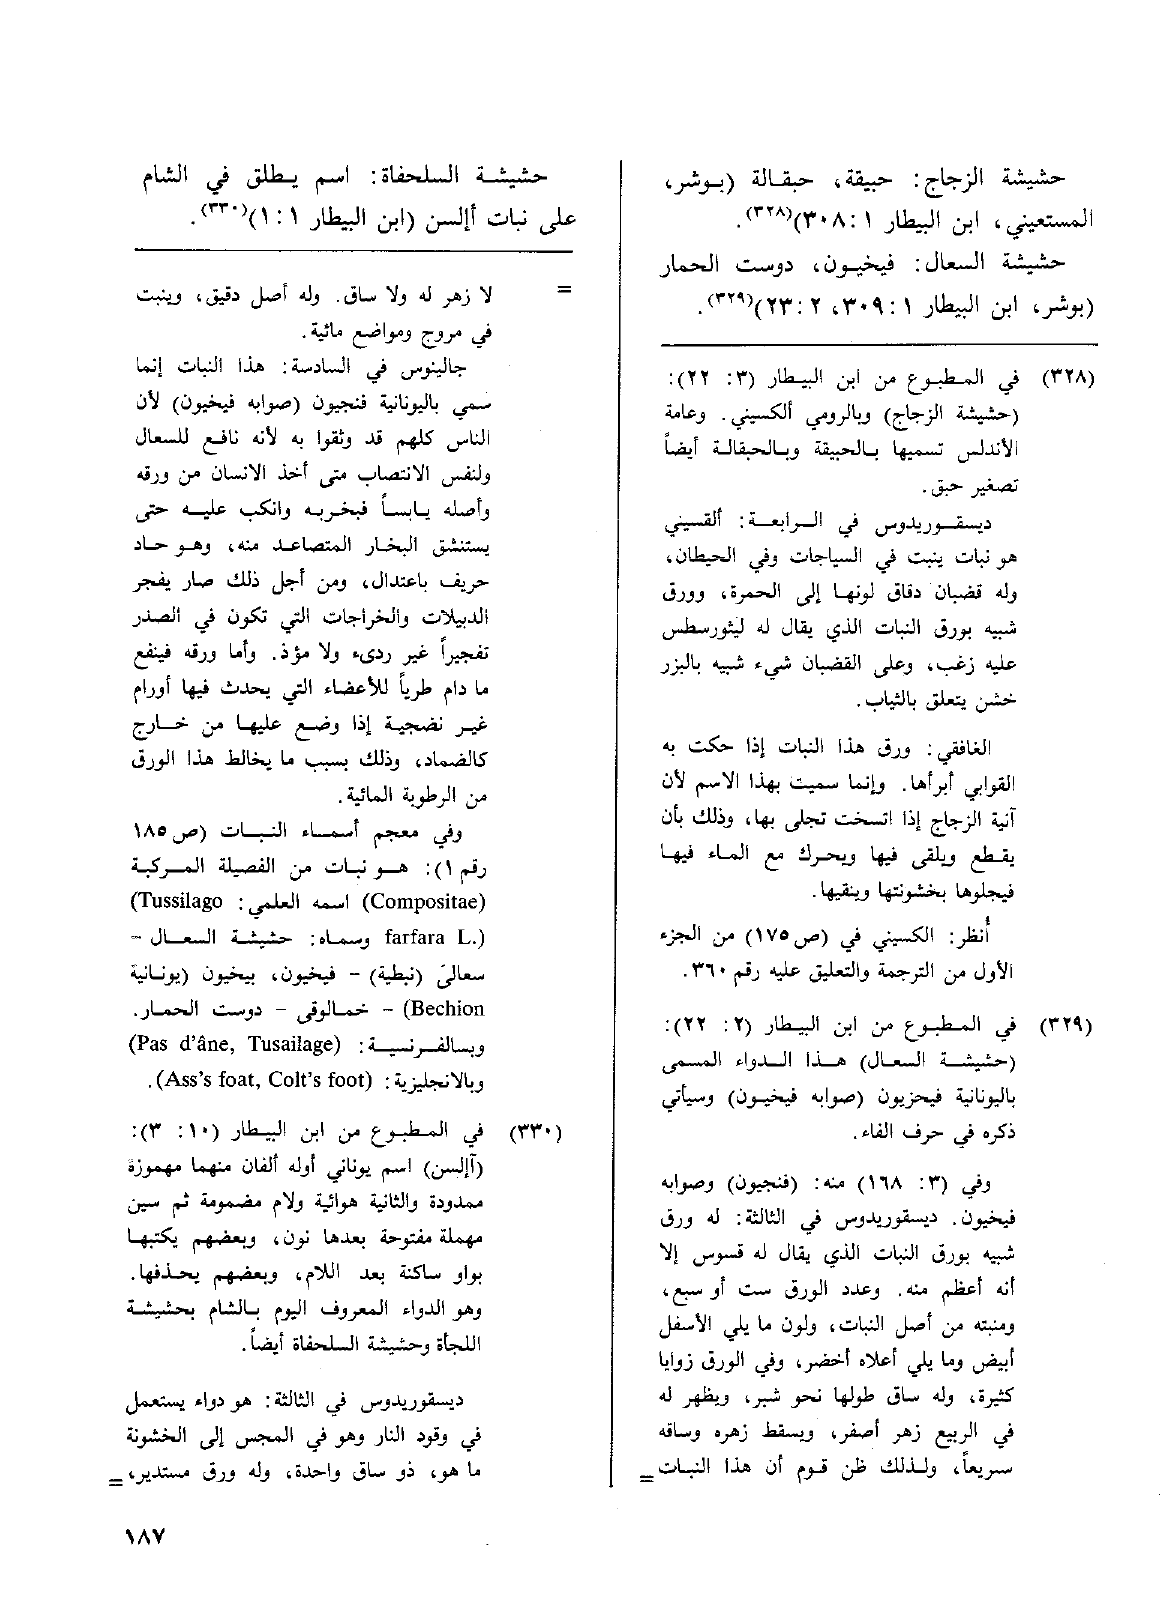 حشيشة الزجاج: حبيقة، حبقالة (بوشر،
المستعيني، ابن البيطار ١: ٣٠٨)(٣٢٨).
حشيشة السعال: فيخيون، دوست الحمار
(بوشر، ابن البيطار ١: ٣٠٩، ٢: ٢٣)(٣٢٩).
(٣٢٨) في المطبوع من ابن البيطار (٣: ٢٢):
(حشيشة الزجاج) وبالرومي ألكسيني. وعامة
الأندلس تسميها بالحبيقة وبالحبقالة أيضاً
تصغير حبق.
ديسقوريدوس في الرابعة: ألقسيني
هو نبات ينبت في السياجات وفي الحيطان،
وله قضبان دقاق لونها إلى الحمرة، وورق
شبيه بورق النبات الذي يقال له ليثورسطس
عليه زغب، وعلى القضبان شيء شبيه بالبزر
خشن يتعلق بالثياب.
الغافقي: ورق هذا النبات إذا حكت به
القوابي أبرأها. وإنما سميت بهذا الاسم لأن
آنية الزجاج إذا اتسخت تجلى بها، وذلك بأن
يقطع ويلقى فيها ويحرك مع الماء فيها
فيجلوها بخشونتها وينقيها.
أُنظر: الكسيني في (ص ١٧٥) من الجزء
الأول من الترجمة والتعليق عليه رقم ٣٦٠.
(٣٢٩) في المطبوع من ابن البيطار (٢: ٢٢):
(حشيشة السعال) هذا الدواء المسمى
باليونانية فيحزيون (صوابه فيخيون) وسيأتي
ذكره في حرف الفاء.
وفي (٣: ١٦٨) منه: (فنجيون) وصوابه
فيخيون. ديسقوريدوس في الثالثة: له ورق
شبيه بورق النبات الذي يقال له قسوس إلا
أنه أعظم منه. وعدد الورق ست أو سبع،
ومنبته من أصل النبات، ولون ما يلي الأسفل
أبيض وما يلي أعلاه أخضر، وفي الورق زوايا
كثيرة، وله ساق طولها نحو شبر، ويظهر له
في الربيع زهر أصفر، ويسقط زهره وساقه
سريعاً، ولذلك ظن قوم أن هذا النبات =
حشيشة السلحفاة: اسم يطلق في الشام
على نبات أإلسن (ابن البيطار ١: ١)(٣٣٠).
= لا زهر له ولا ساق. وله أصل دقيق، وينبت
في مروج ومواضع مائية.
جالينوس في السادسة: هذا النبات إنما
سمي باليونانية فنجيون (صوابه فيخيون) لأن
الناس كلهم قد وثقوا به لأنه نافع للسعال
ولنفس الانتصاب متى أخذ الانسان من ورقه
وأصله يابساً فبخر به وانكب عليه حتى
يستنشق البخار المتصاعد منه، وهو حاد
حريف باعتدال، ومن أجل ذلك صار يفجر
الدبيلات والخراجات التي تكون في الصدر
تفجيراً غير رديء ولا مؤذ. وأما ورقه فينفع
ما دام طرياً للأعضاء التي يحدث فيها أورام
غير نضجية إذا وضع عليها من خارج
كالضماد، وذلك بسبب ما يخالط هذا الورق
من الرطوبة المائية.
وفي معجم أسماء النبات (ص ١٨٥
رقم ١): هو نبات من الفصيلة المركبة
(Compositae) اسمه العلمي: (Tussilago
farfara L.) وسماه: حشيشة السعال -
سعالىّ (نبطية) - فيخيون، بيخيون (يونانية
Bechion) - خمالوقى - دوست الحمار.
وبالفرنسية: (Pas d’âne, Tusailage)
وبالانجليزية: (Ass’s foat, Colt’s foot).
(٣٣٠) في المطبوع من ابن البيطار (١٠: ٣):
(آإلسن) اسم يوناني أوله ألفان منهما مهموزة
ممدودة والثانية هوائية ولام مضمومة ثم سين
مهملة مفتوحة بعدها نون، وبعضهم يكتبها
بواو ساكنة بعد اللام، وبعضهم يحذفها.
وهو الدواء المعروف اليوم بالشام بحشيشة
اللجأة وحشيشة السلحفاة أيضاً.
ديسقوريدوس في الثالثة: هو دواء يستعمل
في وقود النار وهو في المجس إلى الخشونة
ما هو، ذو ساق واحدة، وله ورق مستدير، =
١٨٧